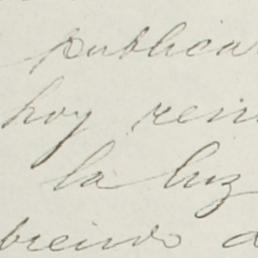 publica
hoy rein
la luz
briendo d